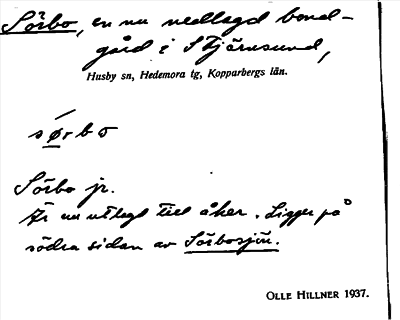 Sörbo, en nu nedlagd bond-
gård i Stjärnsund,
Husby sn, Hedemora tg, Kopparbergs län.
sørbo
Sörbo jr.
Är nu utlagt till åker. Ligger på
södra sidan av Sörbosjön.
OLLE HILLNER 1937.